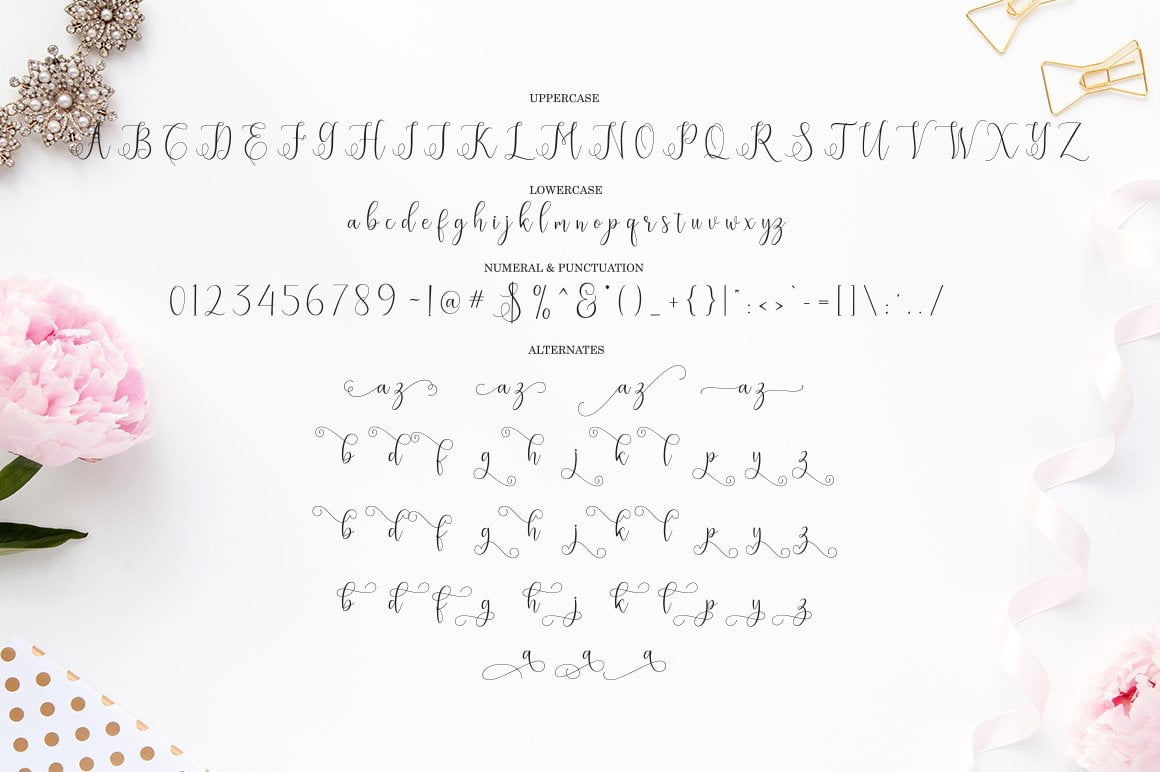 UPPERCASE
A B C D E F G H I J K L M N O P Q R S T U V W X Y Z
LOWERCASE
a b c d e f g h i j k l m n o p q r s t u v w x y z
NUMERAL & PUNCTUATION
0 1 2 3 4 5 6 7 8 9 ~ ! @ # $ % ^ & * ( ) _ + { } | " : < > ` - = [ ] \ ; ' , . /
ALTERNATES
a z a z a z a z
b d f g h j k l p y z
b d f g h j k l p y z
b d f g h j k l p y z
a a a